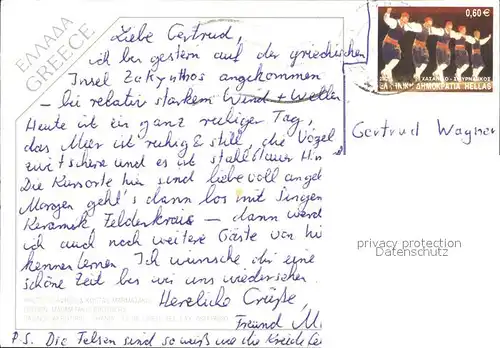 ΕΛΛΑΔΑ
GREECE
Liebe Gertrud,
ich bin gestern auf der griechischen
Insel Zakynthos angekommen
– bei relativ starkem Wind + Wellen
Heute ist ein ganz ruhiger Tag,
das Meer ist ruhig & still, die Vögel
zwitschern und es ist stahlblauer
Die Kursorte hier sind liebevoll angel
Morgen geht's dann los mit Singen
Keramik Feldenkrais – dann werd
ich auch noch weitere Gäste von hi
kennenlernen. Ich wünsche dir eine
schöne Zeit bis wir uns wiedersehen.
Herzliche Grüße,
Freund M.
P.S. Die Felsen sind so weiß wie die Kreide
0,60 €
ΧΑΣΑΠΙΚΟ - ΣΜΥΡΝΑΪΚΟΣ
ΕΛΛΗΝΙΚΗ ΔΗΜΟΚΡΑΤΙΑ HELLAS
Gertrud Wagner
privacy protection
Datenschutz